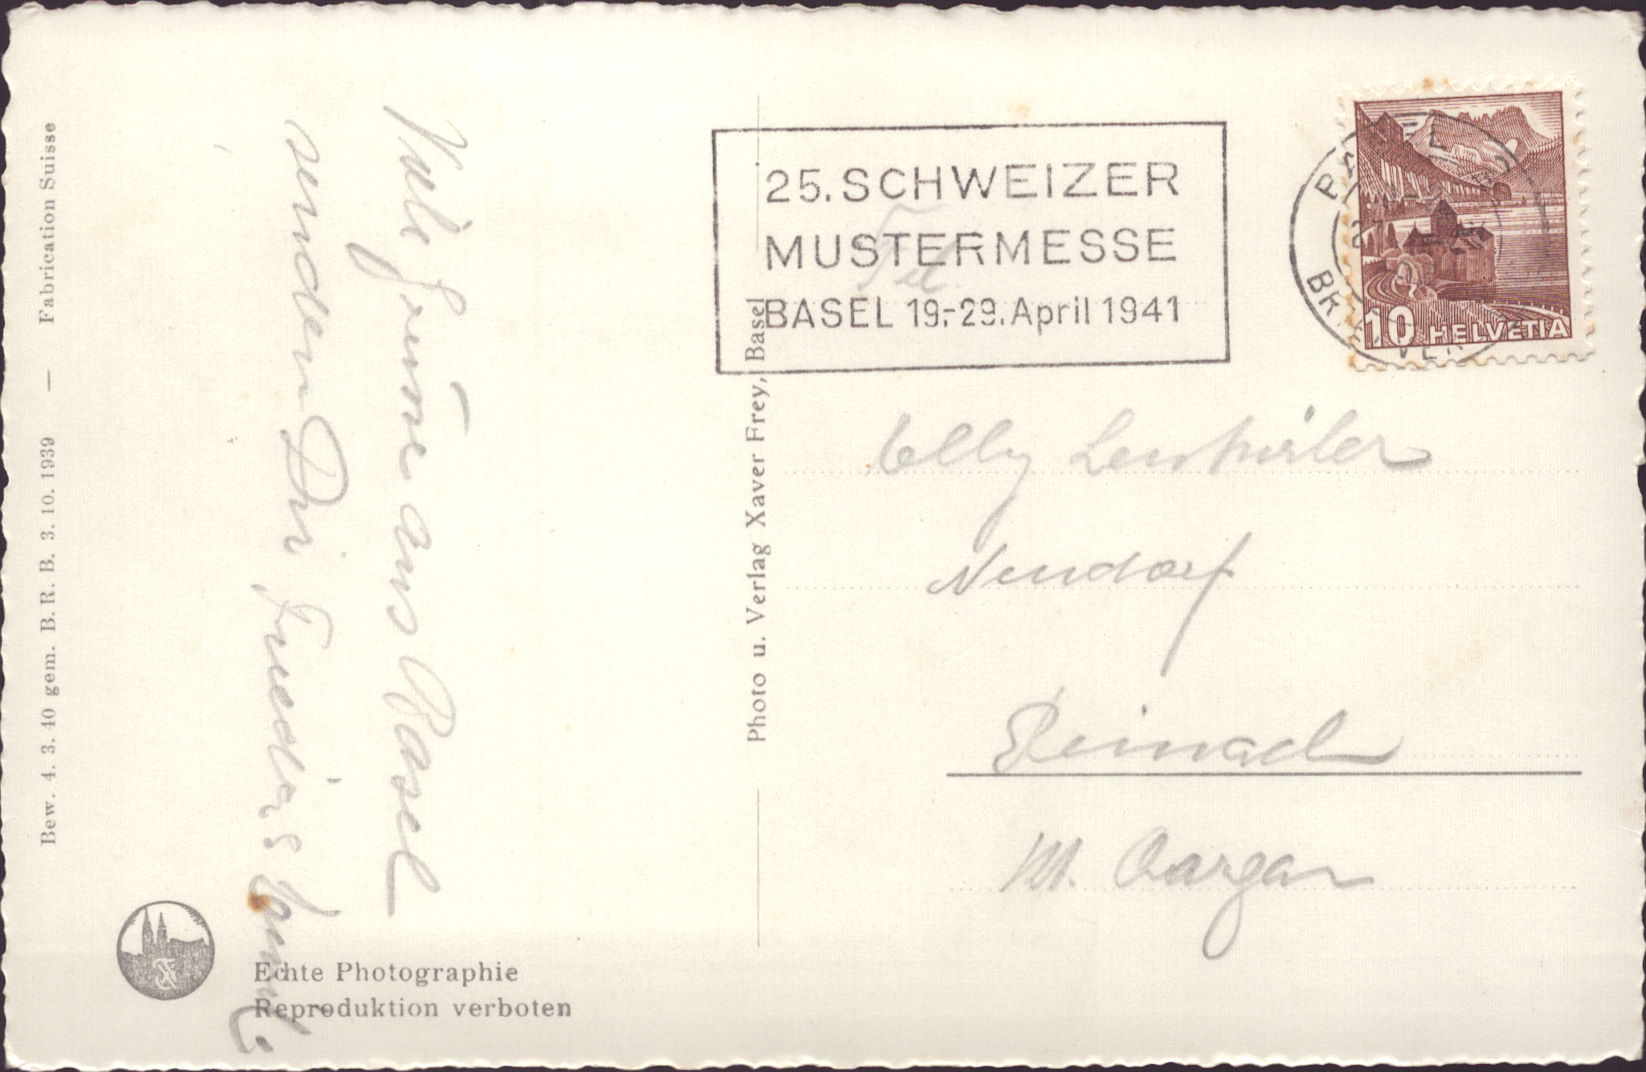 Bew. 4. 3. 40 gem. B. R. B. 3. 10. 1939 — Fabrication Suisse
Viele Grüsse aus Basel
senden Dir Frieda &
Echte Photographie
Reproduktion verboten
Photo u. Verlag Xaver Frey, Basel
25. SCHWEIZER
MUSTERMESSE
BASEL 19.-29. April 1941
10 HELVETIA
Frl.
Elly
Neudorf
Reinach
Kt. Aargau